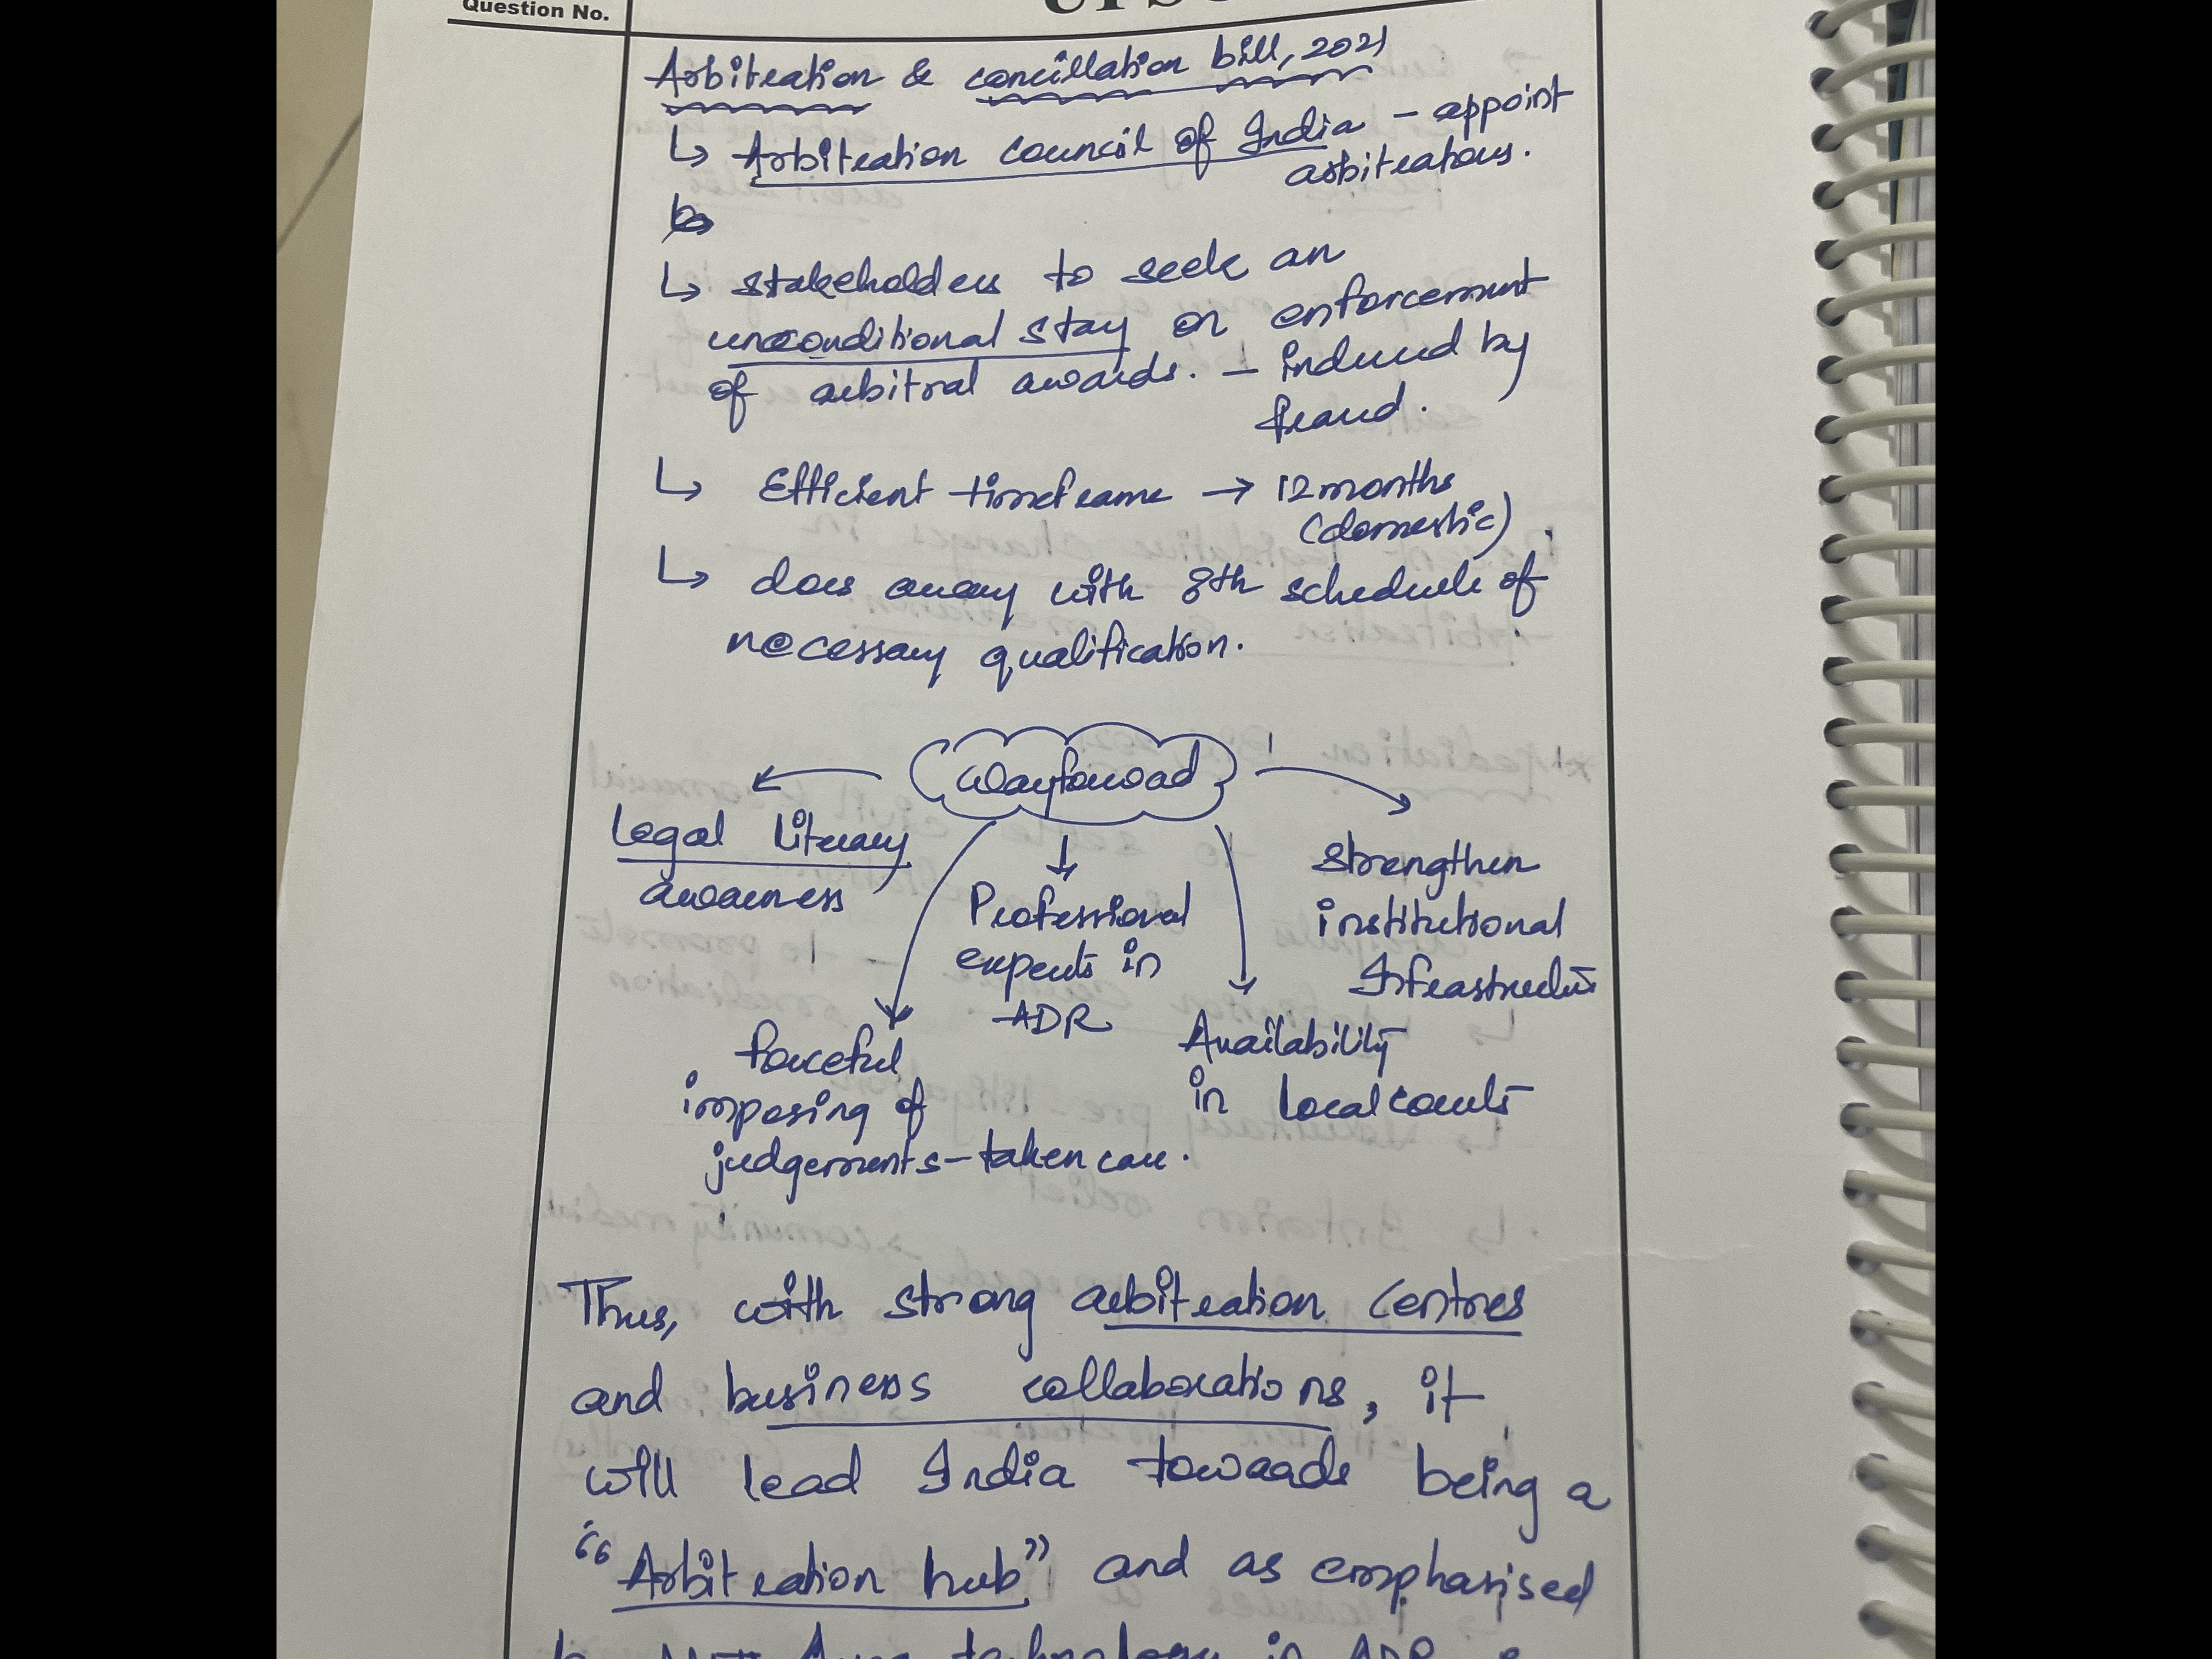 Question No.
UPSC
Arbitration & concillation bill, 2021
↳ Arbitration council of India - appoint
arbitrators.
↳ stakeholders to seek an
unconditional stay on enforcement
of arbitral awards. - induced by
fraud.
↳ Efficient timeframe → 12 months
(domestic).
↳ does away with 8th schedule of
necessary qualification.
Wayforwad
Legal Literacy
awareness
Professional
experts in
ADR
strengthen
institutional
Infrastructure
forceful
imposing of
judgements - taken care.
Availability
in local courts
Thus, with strong arbitration centres
and business collaborations, it
will lead India towards being a
"Arbitration hub" and as emphasised
technology in ADR